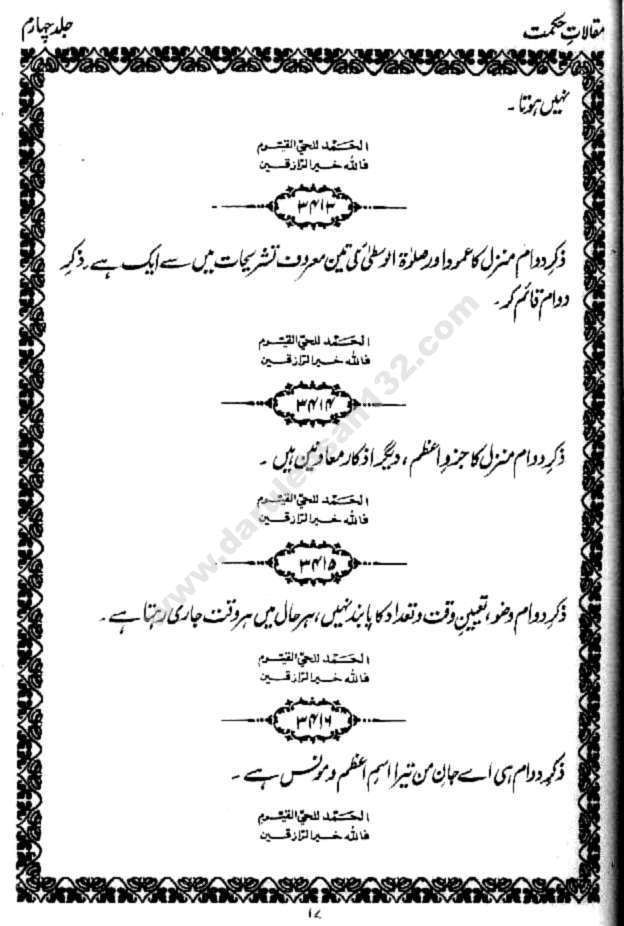 مقالاتِ حکمت
جلد چہارم
نہیں ہوتا۔
الحَمد للحيّ القيّوم
فالله خير الرازقين
۳۴۱۳
ذکرِ دوام منزل کا عمود اور صلوٰۃ الوسطیٰ کی تین معروف تشریحات میں سے ایک ہے۔ ذکرِ
دوام قائم کر۔
الحَمد للحيّ القيّوم
فالله خير الرازقين
۳۴۱۴
ذکرِ دوام منزل کا جزوِ اعظم، دیگر اذکار معاونین ہیں۔
الحَمد للحيّ القيّوم
فالله خير الرازقين
۳۴۱۵
ذکرِ دوام وضو، تعیینِ وقت و تعداد کا پابند نہیں، ہر حال میں ہر وقت جاری رہتا ہے۔
الحَمد للحيّ القيّوم
فالله خير الرازقين
۳۴۱۶
ذکرِ دوام ہی اے جانِ من تیرا اسمِ اعظم و مونس ہے۔
الحَمد للحيّ القيّوم
فالله خير الرازقين
۱۷
www.darulehsan132.com